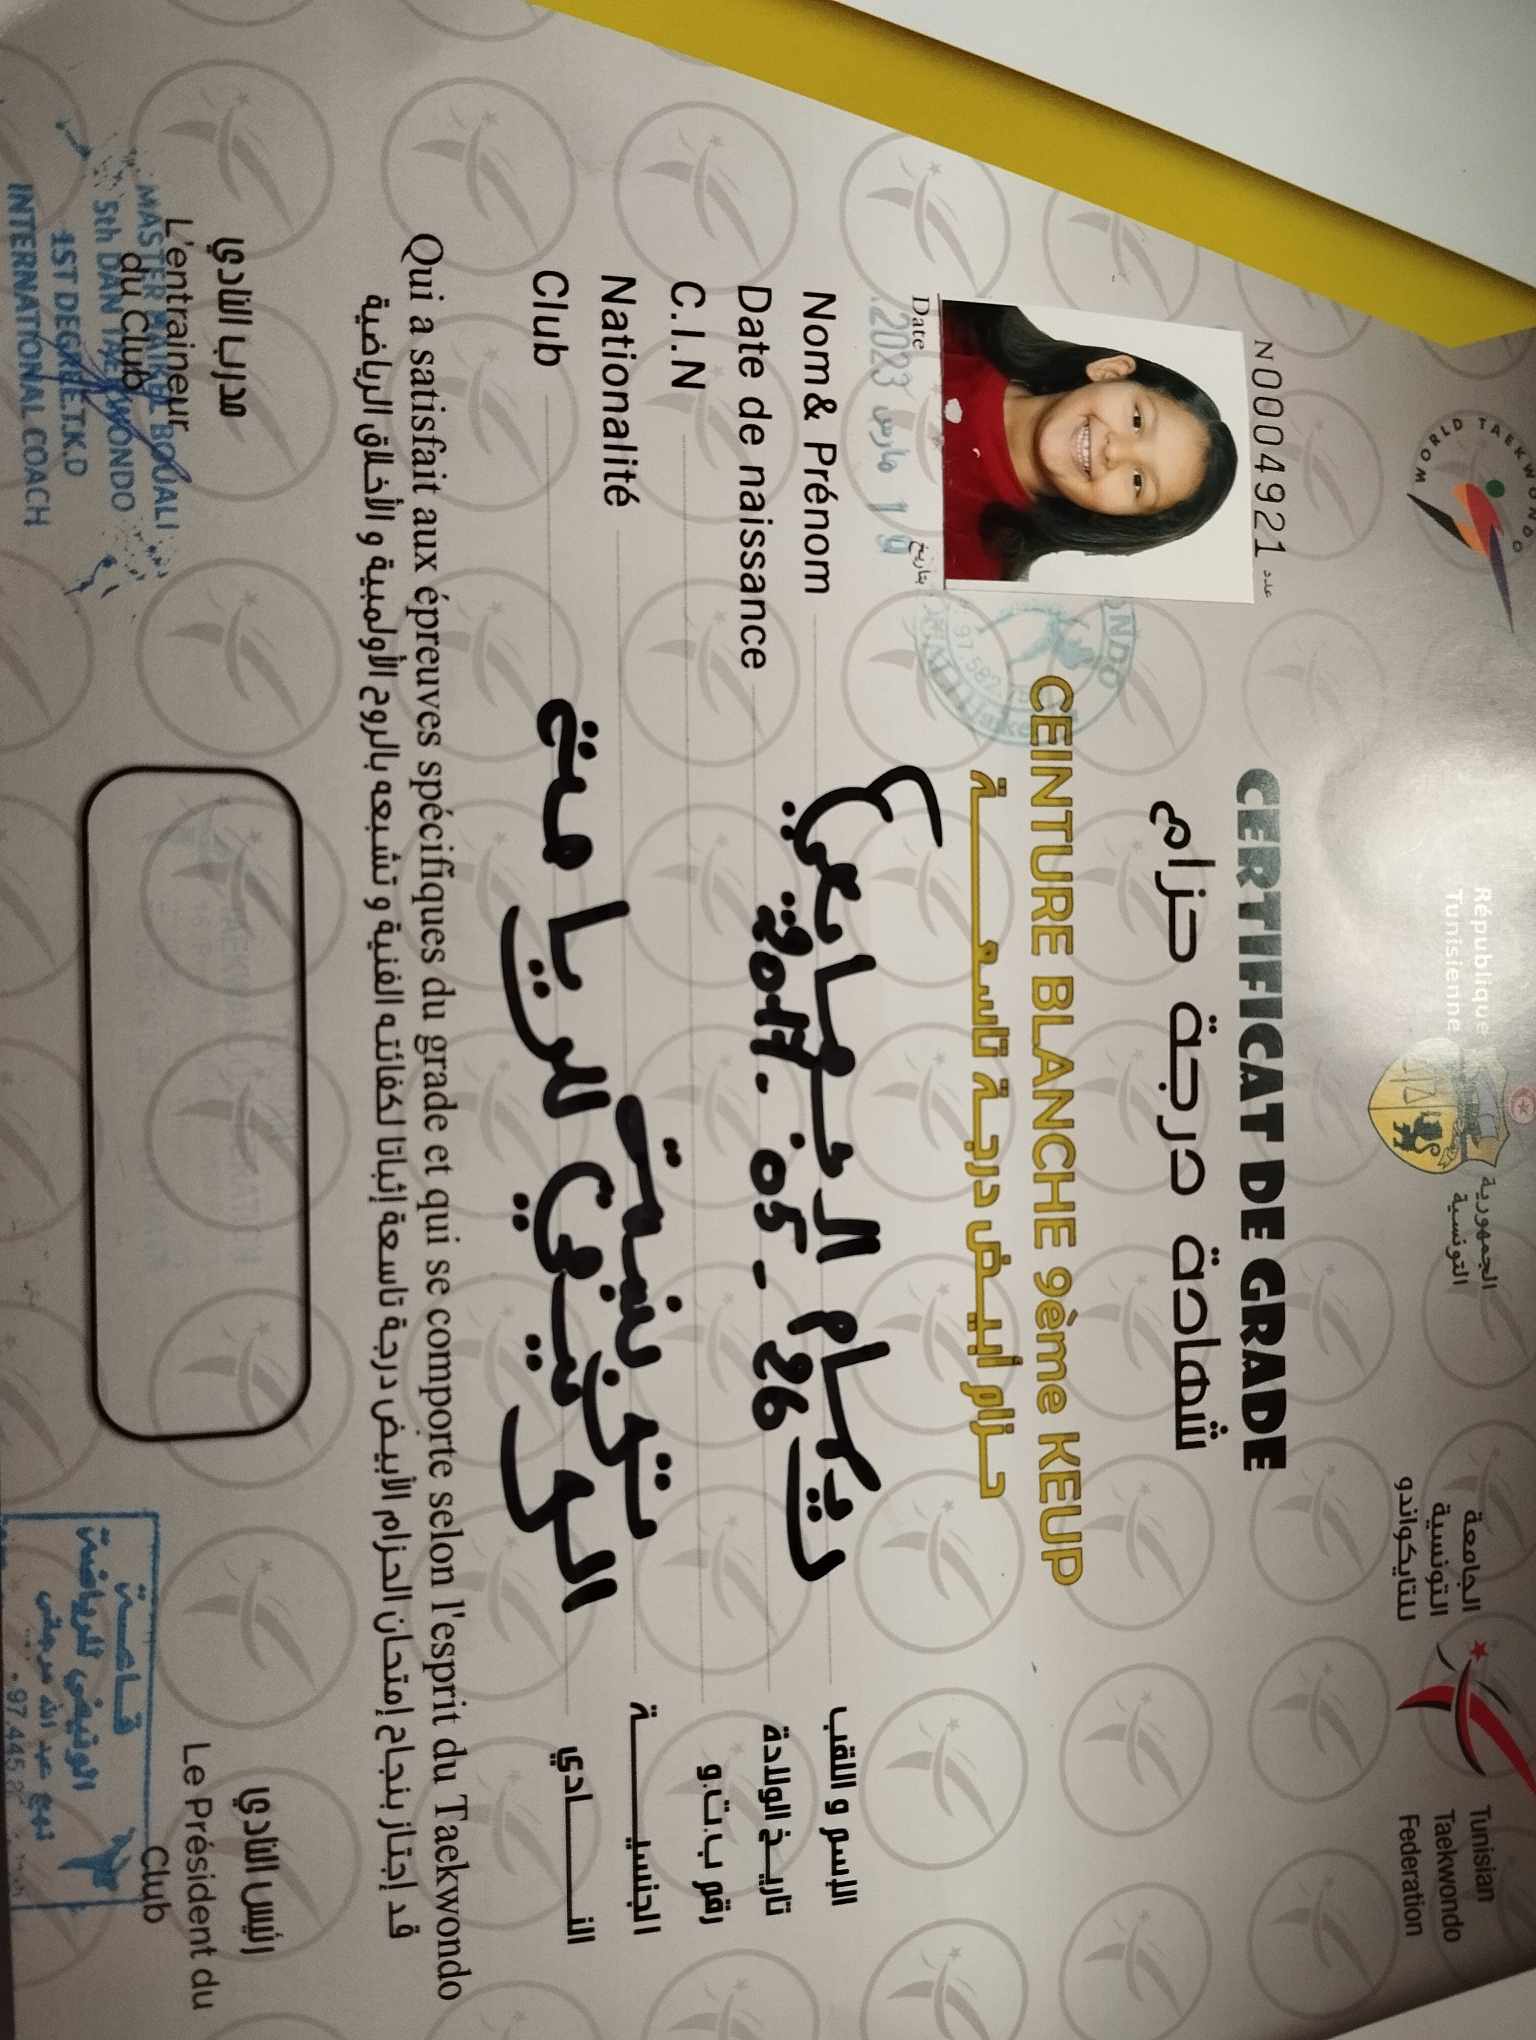 WORLD TAEKWONDO
République
Tunisienne
الجمهورية
التونسية
الجامعة
التونسية
للتايكواندو
Tunisian
Taekwondo
Federation
N0004921 عدد
CERTIFICAT DE GRADE
شهادة درجة حزام
CEINTURE BLANCHE 9ème KEUP
حزام أبيض درجة تاسعة
Date بتاريخ
19 مارس 2023
Nom& Prénom الشايعي الإسم و اللقب
Date de naissance 2017. 05 - 26 تاريخ الولادة
C.I.N رقم ب.ت.و
Nationalité تونسية الجنسية
Club الوتيفي للرياضة النادي
Qui a satisfait aux épreuves spécifiques du grade et qui se comporte selon l'esprit du Taekwondo
قد إجتاز بنجاح إمتحان الحزام الأبيض درجة تاسعة إثباتا لكفائته الفنية و تشبعه بالروح الأولمبية و الأخلاق الرياضية
مدرب النادي
L'entraineur
du Club
MASTER BOUALI
5th DAN TAEKWONDO
1ST DEGREE.T.K.D
INTERNATIONAL COACH
رئيس النادي
Le Président du
Club
قاعة
الوتيفي للرياضة
نهج عبد الله
97.445